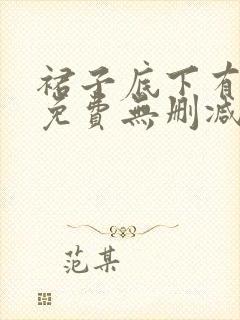 裙子底下有
免費無刪減
范某